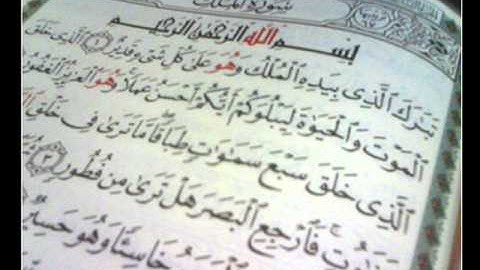 سورة الملك
بِسْمِ اللَّهِ الرَّحْمَٰنِ الرَّحِيمِ
تَبَٰرَكَ الَّذِى بِيَدِهِ الْمُلْكُ وَهُوَ عَلَىٰ كُلِّ شَىْءٍ قَدِيرٌ ١ الَّذِى خَلَقَ
الْمَوْتَ وَالْحَيَوٰةَ لِيَبْلُوَكُمْ أَيُّكُمْ أَحْسَنُ عَمَلًا وَهُوَ الْعَزِيزُ الْغَفُورُ
الَّذِى خَلَقَ سَبْعَ سَمَٰوَٰتٍ طِبَاقًا مَّا تَرَىٰ فِى خَلْقِ
فَارْجِعِ الْبَصَرَ هَلْ تَرَىٰ مِن فُطُورٍ ٣
الْبَصَرُ خَاسِئًا وَهُوَ حَسِيرٌ